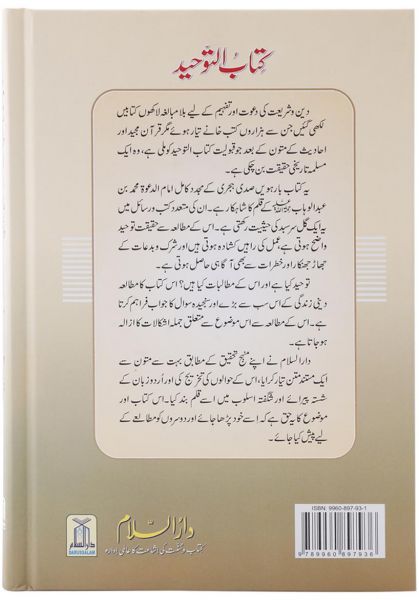 کتاب التوحید
دین و شریعت کی دعوت اور تفہیم کے لیے بلا مبالغہ لاکھوں کتابیں
لکھی گئیں جن سے ہزاروں کتب خانے تیار ہوئے مگر قرآن مجید اور
احادیث کے متون کے بعد جو قبولیت کتاب التوحید کو ملی ہے، وہ ایک
مسلمہ تاریخی حقیقت بن چکی ہے۔
یہ کتاب بارہویں صدی ہجری کے مجدد کامل امام الدعوۃ محمد بن
عبدالوہاب کے قلم کا شاہکار ہے۔ ان کی متعدد کتب و رسائل میں
یہ ایک گل سرسبد کی حیثیت رکھتی ہے۔ اس کے مطالعہ سے حقیقت توحید
واضح ہوتی ہے، عمل کی راہیں کشادہ ہوتی ہیں اور شرک و بدعات کے
جھاڑ جھنکار اور خطرات سے بھی آگاہی حاصل ہوتی ہے۔
توحید کیا ہے اور اس کے مطالبات کیا ہیں؟ اس کتاب کا مطالعہ
دینی زندگی کے اس سب سے بڑے اور سنجیدہ سوال کا جواب فراہم کرتا
ہے۔ اس کے مطالعہ سے اس موضوع سے متعلق جملہ اشکالات کا ازالہ
ہو جاتا ہے۔
دارالسلام نے اپنے منہج تحقیق کے مطابق بہت سے متون سے
ایک مستند متن تیار کرایا، اس کے حوالوں کی تخریج کی اور اُردو زبان کے
شستہ پیرائے اور شگفتہ اسلوب میں اسے قلم بند کیا۔ اس کتاب اور
موضوع کا یہ حق ہے کہ اسے خود پڑھا جائے اور دوسروں کو مطالعے کے
لیے پیش کیا جائے۔
ISBN: 9960-897-93-1
9 789960 897936
دارالسلام
DARUSSALAM
دارالسلام
کتاب و سنت کی اشاعت کا عالمی ادارہ